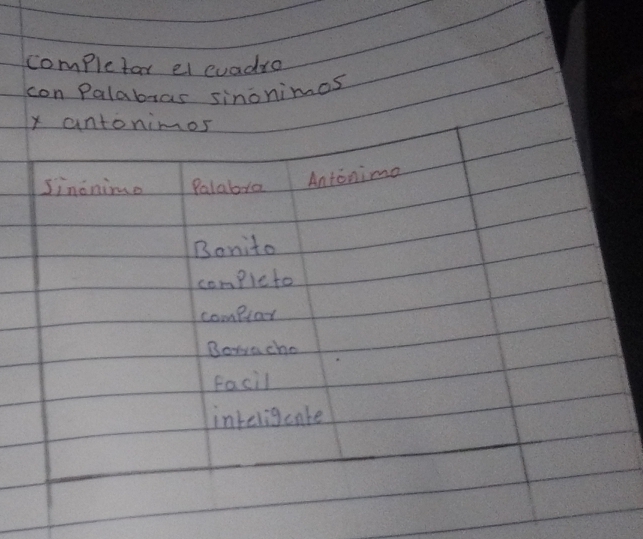 completar el cuadro
con Palabras sinónimos
y antónimos
Sinónimo Palabra Antónimo
Bonito
completo
comprar
Borracho
Facil
inteligente